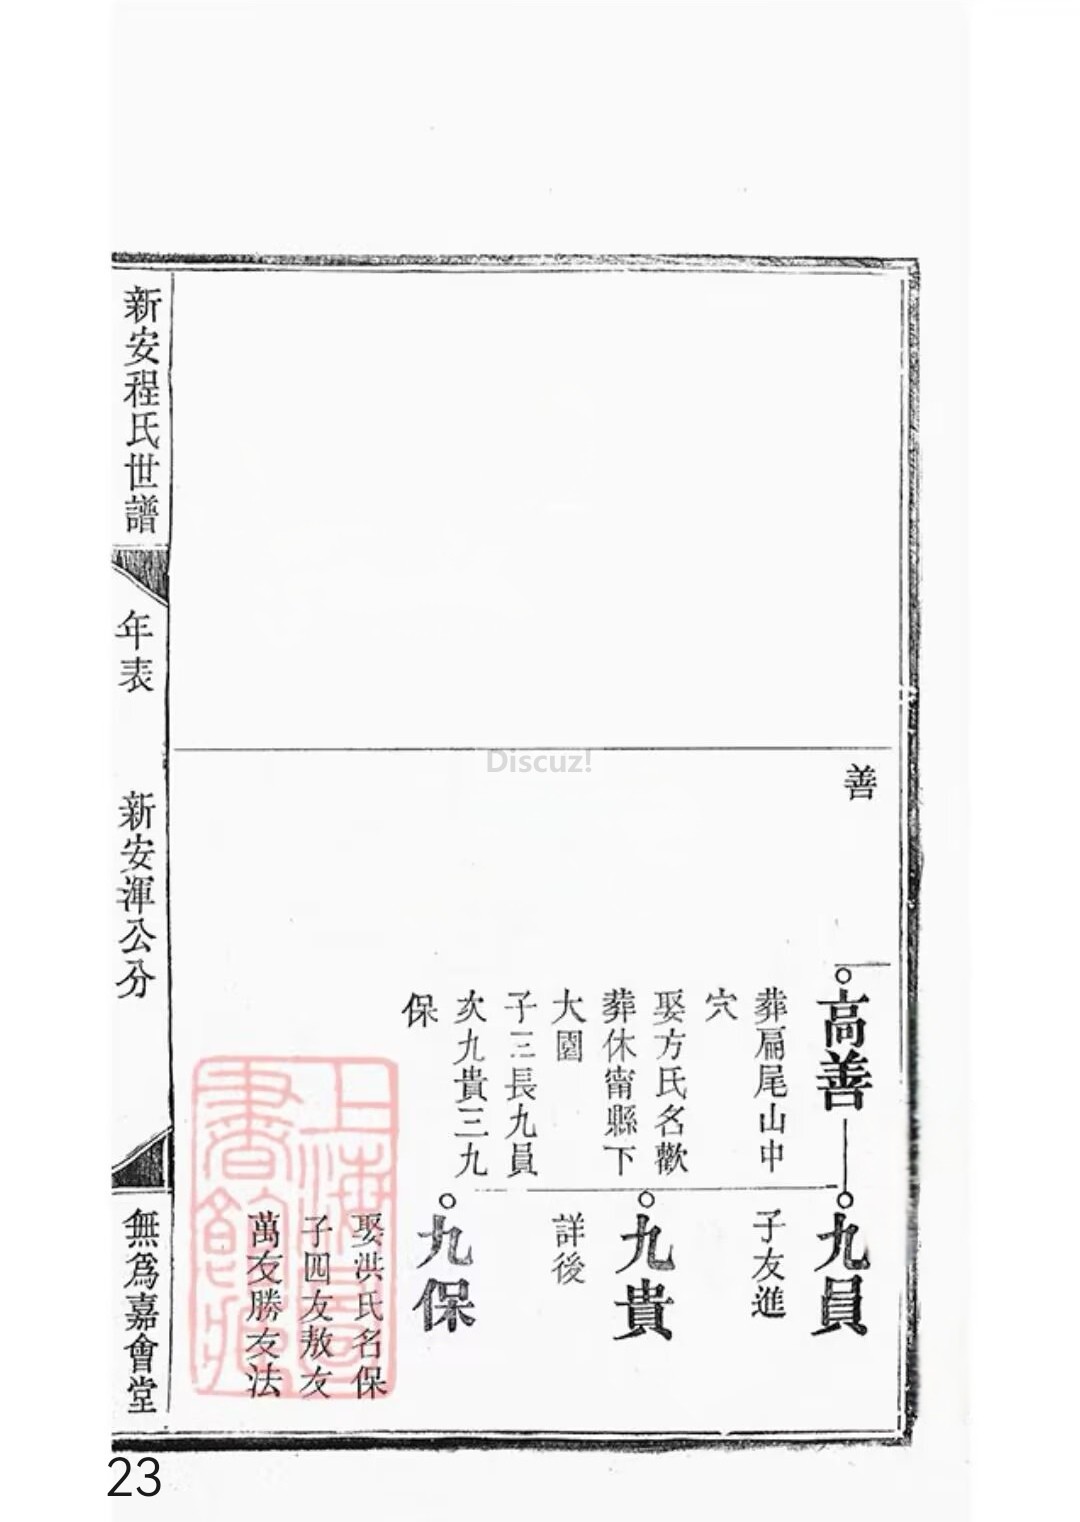 善
高善
葬扁尾山中
穴
娶方氏名歡
葬休甯縣下
大園
子三長九員
次九貴三九
保
九員
子友進
九貴
詳後
九保
娶洪氏名保
子四友敖友
萬友勝友法
新安程氏世譜
年表
新安渾公分
無爲嘉會堂
上海圖書館藏
Discuz!
23